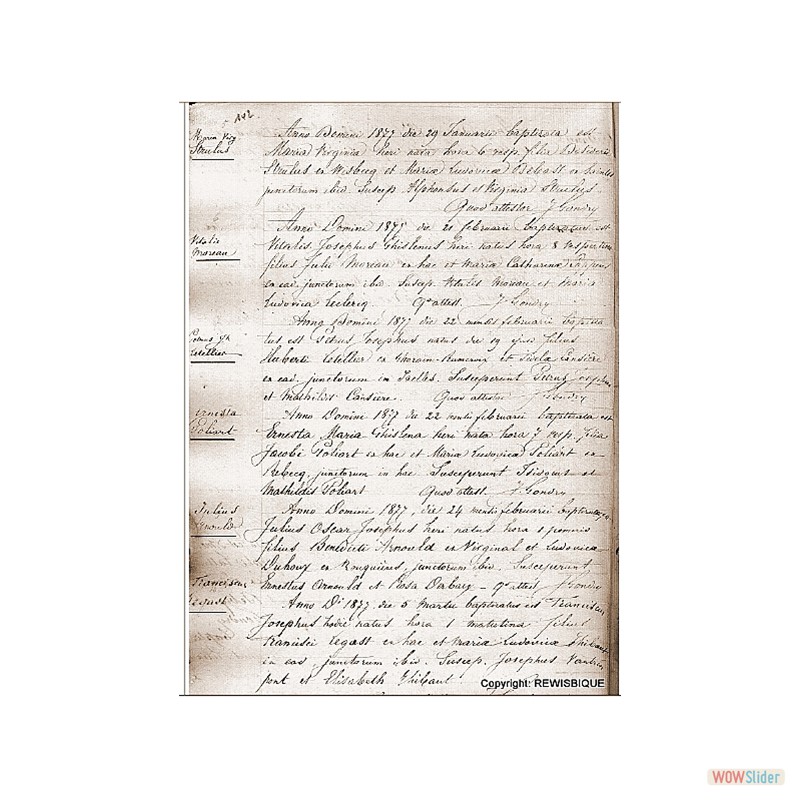 142.
Maria Virg
Strulus
Anno Domini 1877 die 29 Januarii baptizata est
Maria Virginia heri nata hora 6 vesp. filia Desiderii
Strulus ex Wisbecq et Maria Ludovica Beligst ex
junctorum ibid. Suscep. Alphonsus et Virginia Strulus
Quod attestor J Gondry
Vitalis
Moreau
Anno Domini 1877 die 21 februarii baptizatus est
Vitalis Josephus Ghislenus heri natus hora 8 vespertina
filius Julii Moreau ex hac et Maria Catharina
ex ead. junctorum ibid. Suscep. Vitalis Moreau et Maria
Ludovica Leclercq. Qd attest. J Gondry
Petrus Jh
Letellier
Anno Domini 1877 die 22 mensis februarii baptiza
tus est Petrus Josephus natus die 19 filius
Huberti Letellier ex et Cansiere
ex ead. junctorum in Saelles. Susceperunt Petrus Josephus
et Mathildis Cansiere. Quod attestor J Gondry
Ernesta
Poliart
Anno Domini 1877 die 22 mensis februarii baptizata est
Ernestia Maria Ghislena heri nata hora 7 vesp. filia
Jacobi Poliart ex hac et Maria Ludovica Poliart ex
Rebecq, junctorum in hac. Susceperunt et
Mathildis Poliart Quod attest. J Gondry
Julius
Arnould
Anno Domini 1877, die 24 mensis februarii baptizatus
Julius Oscar Josephus heri natus hora 1 pomeris
filius Benedicti Arnould ex Virginal et Ludovica
Duhoux ex junctorum ibid. Susceperunt
Ernestus Arnould et Rosa Dabury - Qd attest J Gondry
Franciscus
Legast
Anno Di 1877, die 5 Martii baptizatus est Franciscus
Josephus hodie natus hora 1 matutina filius
Francisci Legast ex hac et Maria Ludovica Thibaut
in ead. junctorum ibid. Suscep. Josephus
pont et Elisabeth Thibaut.
Copyright: REWISBIQUE
WOWSlider